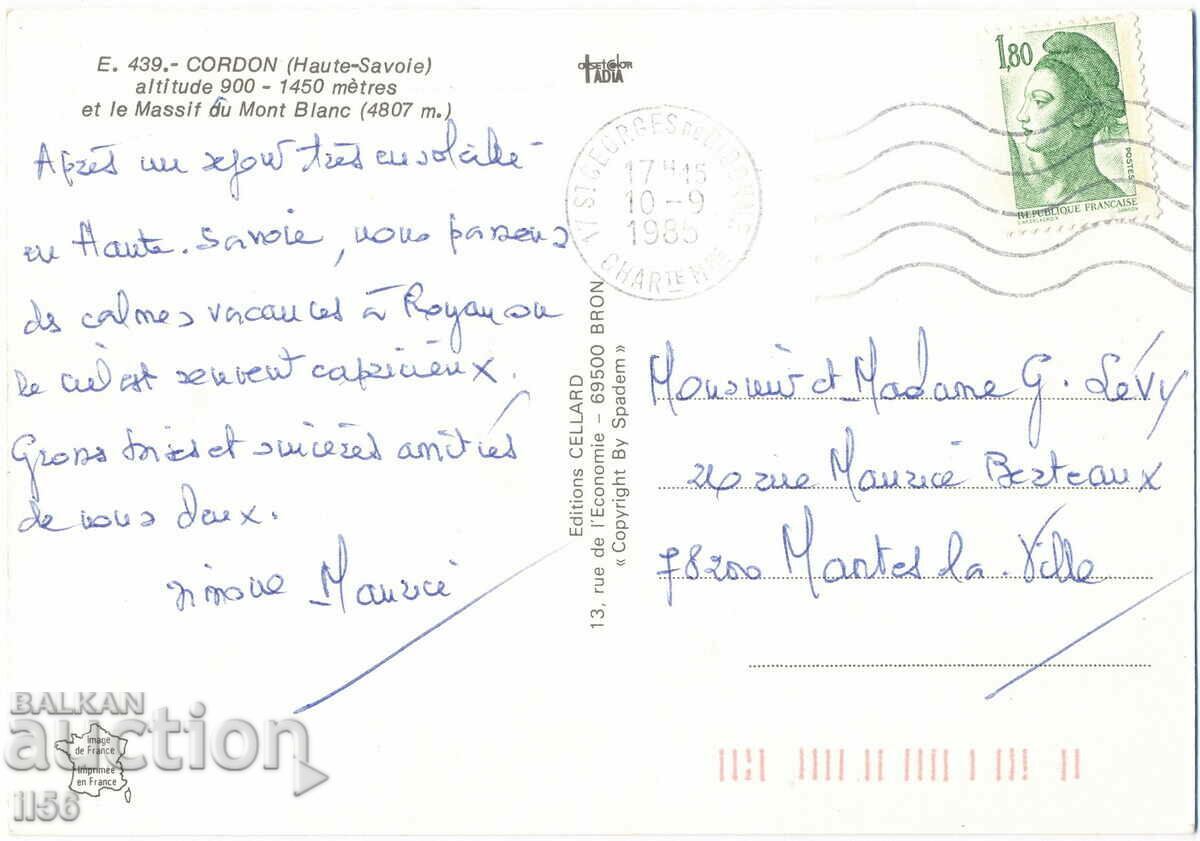 E. 439.- CORDON (Haute-Savoie)
altitude 900 - 1450 mètres
et le Massif du Mont Blanc (4807 m.)
OFFSET COLOR
IADIA
Après un séjour très ensoleillé
en Haute-Savoie, nous passons
de calmes vacances à Royan où
le ciel est souvent capricieux.
Gross bises et sincères amitiés
de nous deux.
Simone Maurice
17 ST GEORGES DE DIDONNE
17 H 15
10 - 9
1985
CHARTE MME
1,80
POSTES
REPUBLIQUE FRANCAISE
Editions CELLARD
13, rue de l'Economie - 69500 BRON
« Copyright By Spadem »
Monsieur et Madame G. Lévy
rue Maurice Berteaux
78200 Mantes la Ville
BALKAN
auction
Image
de France
Imprimée
en France
il56